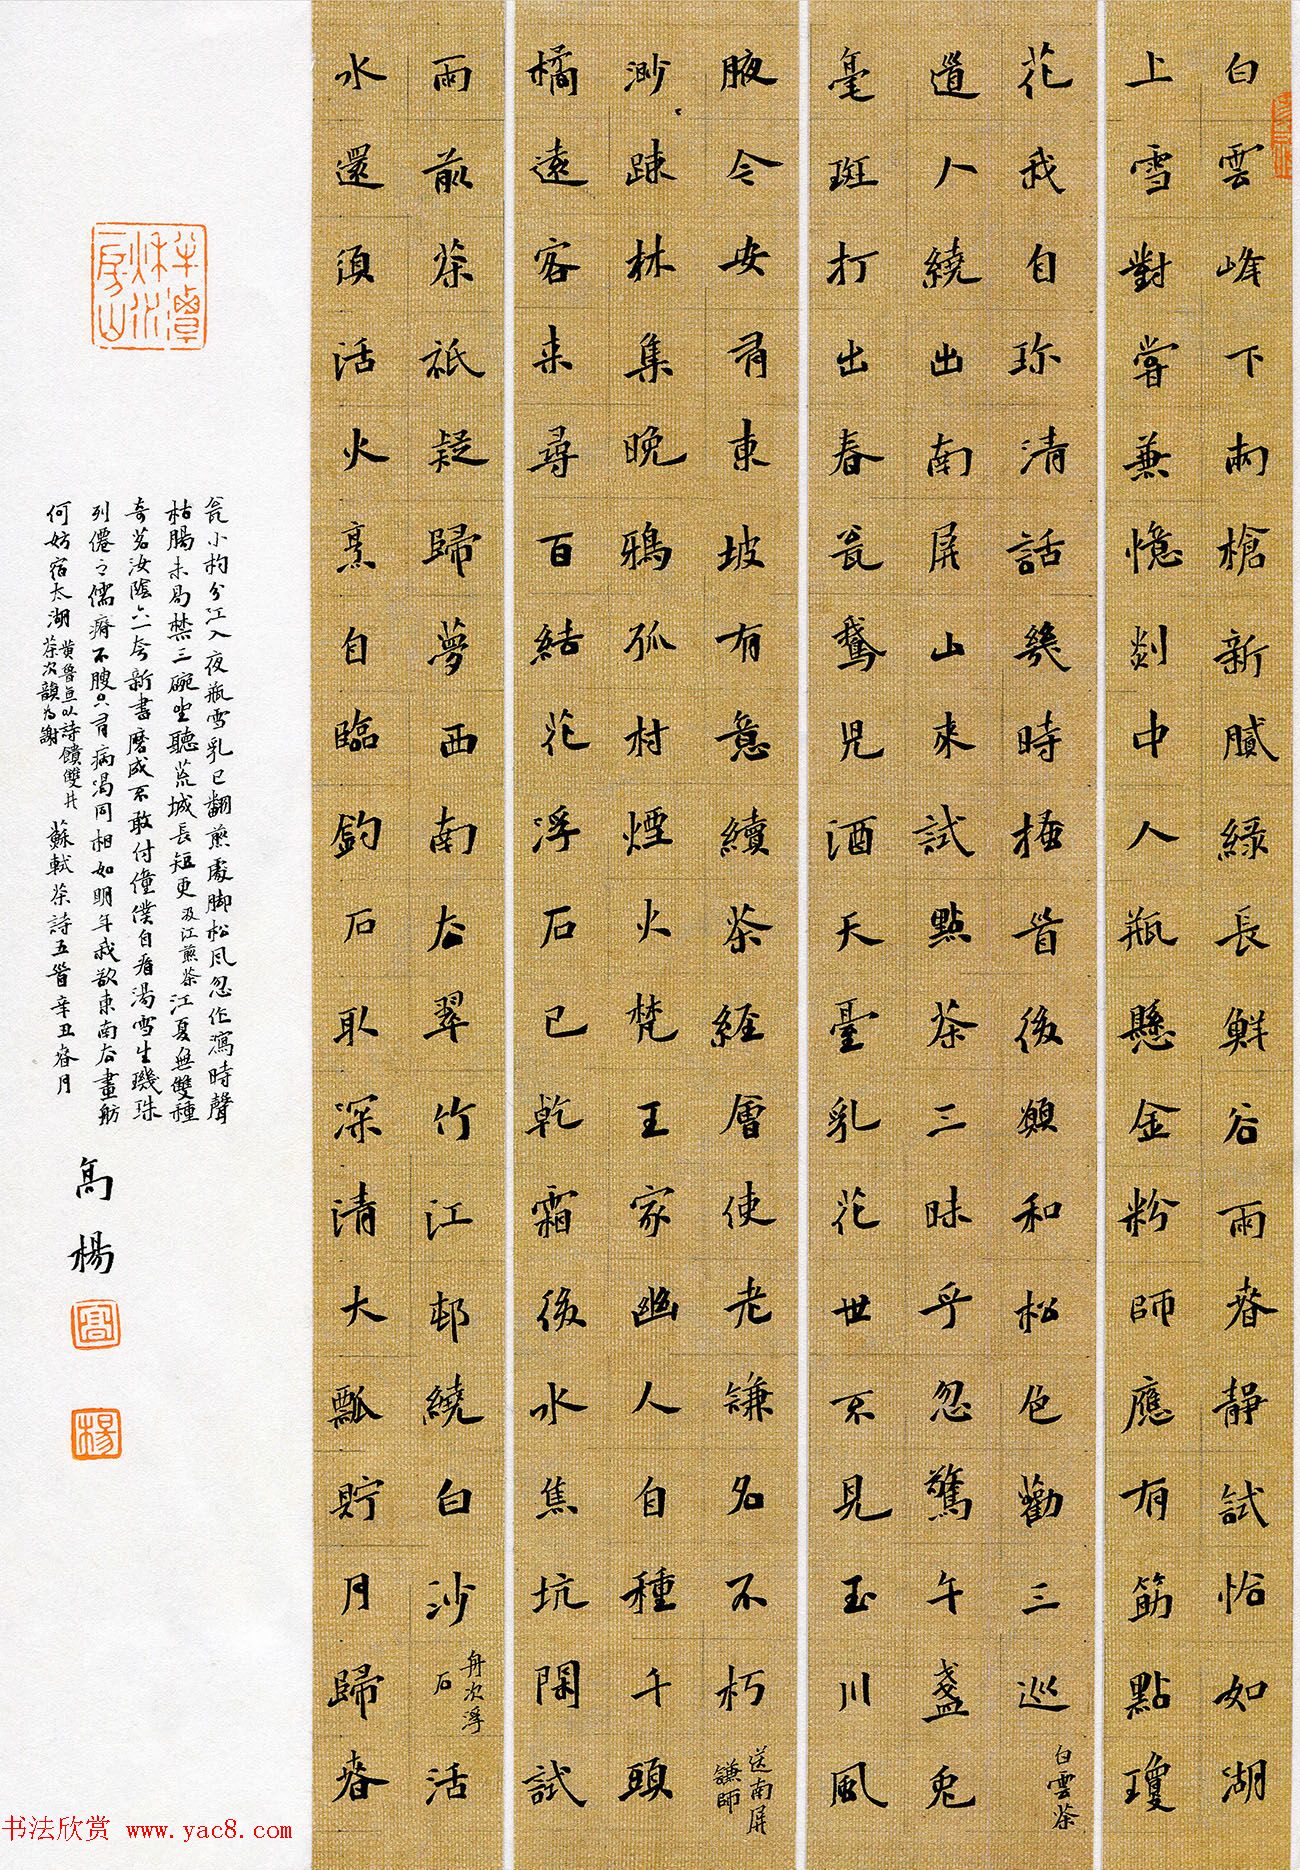 白雲峰下兩槍新膩綠長鮮谷雨春靜試恰如湖
上雪對嘗兼憶剡中人瓶懸金粉師應有筯點瓊
花我自珎清話幾時揰首後願和松色勸三巡
白雲茶
道人繞出南屏山來試點茶三昧手忽驚午盞兔
毫斑打出春瓮鵞児酒天臺乳花世不見玉川風
腋令安有東坡有意續茶經會使老謙名不朽
送南屏
謙師
渺渺踈林集晚鴉孤村煙火梵王家幽人自種千頭
橘遠客来尋百結花浮石已乾霜後水焦坑閑試
雨前茶祇疑歸夢西南去翠竹江邨繞白沙
舟次浮
石
活
水還須活火烹自臨釣石取深清大瓢貯月歸春
瓮小杓分江入夜瓶雪乳已翻煎處脚松风忽作瀉時聲
枯腸未易禁三碗坐聽荒城長短更 汲江煎茶 江夏無雙種
奇茗汝陰六一夸新書磨成不敢付僮僕自看湯雪生璣珠
列僊之儒瘠不腴只有病渴同相如明年我欲東南去畫舫
何妨宿太湖 黄魯直以詩饋雙井茶次韻為謝 蘇軾茶詩五首辛丑春月
高楊
高
楊
书法欣赏 www.yac8.com